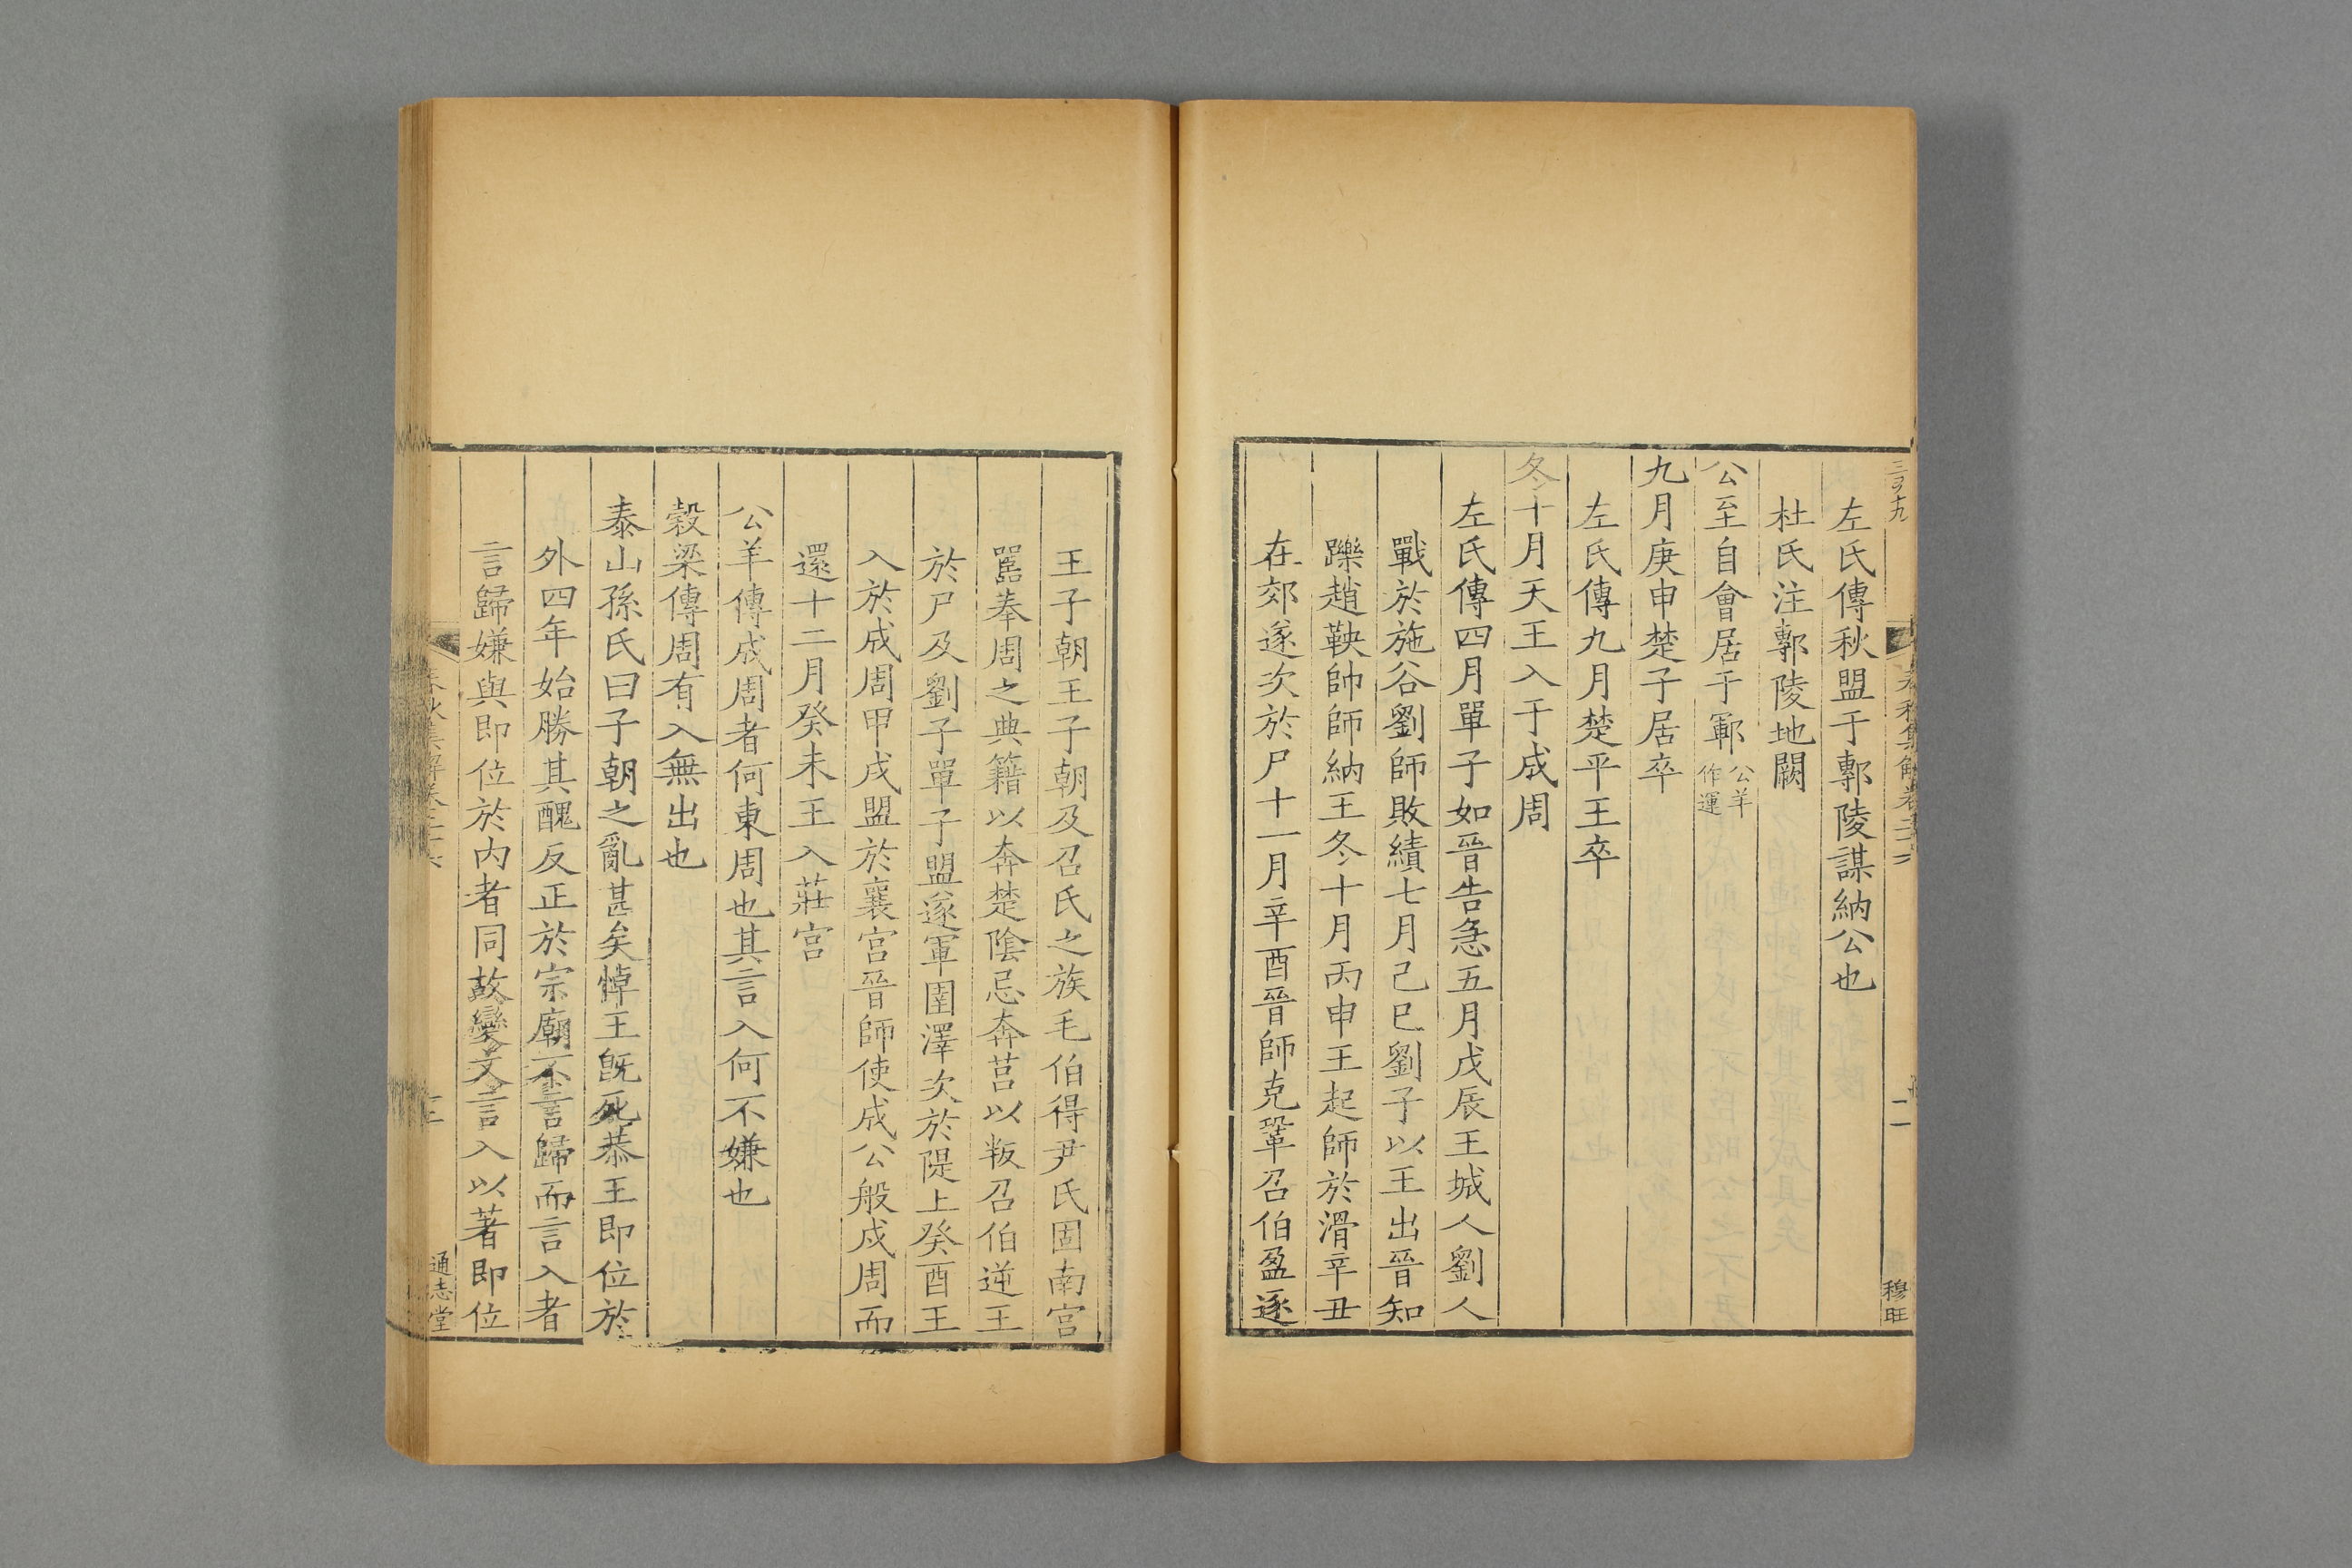 左氏傳秋盟于鄟陵謀納公也
杜氏注鄟陵地闕
公至自會居于鄆公羊作運
九月庚申楚子居卒
左氏傳九月楚平王卒
冬十月天王入于成周
左氏傳四月單子如晉告急五月戊辰王城人劉人
戰於施谷劉師敗績七月己巳劉子以王出晉知
躒趙鞅帥師納王冬十月丙申王起師於滑辛丑
在郊遂次於尸十一月辛酉晉師克鞏召伯盈逐
王子朝王子朝及召氏之族毛伯得尹氏固南宫
嚚奉周之典籍以奔楚陰忌奔莒以叛召伯逆王
於尸及劉子單子盟遂軍圉澤次於隄上癸酉王
入於成周甲戌盟於襄宫晉師使成公般戍周而
還十二月癸未王入莊宫
公羊傳成周者何東周也其言入何不嫌也
穀梁傳周有入無出也
泰山孫氏曰子朝之亂甚矣悼王旣死恭王即位於
外四年始勝其醜反正於宗廟不言歸而言入者
言歸嫌與即位於内者同故變文言入以著即位
二
穆旺
通志堂